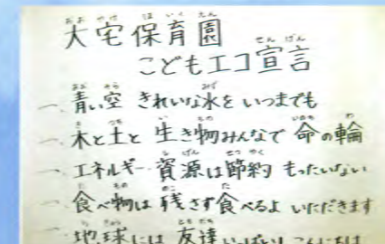 大宅保育園
こどもエコ宣言
一、青い空 きれいな水を いつまでも
一、木と土と 生き物みんなで 命の輪
一、エネルギー 資源は節約 もったいない
一、食べ物は 残さず食べるよ いただきます
一、地球には 友達いっぱい! こんにちは